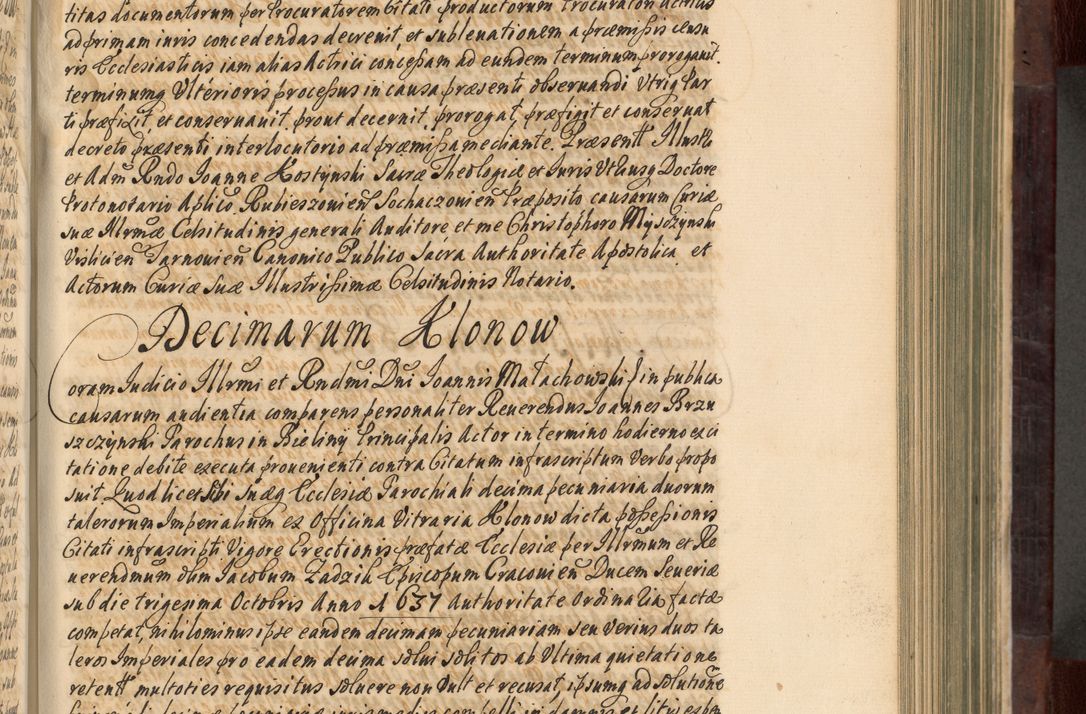 titas documentorum per Procuratorem Citati productorum Procuratori Actricis
ad primam iuris concedendas decreuit, et subleuationem a præmissis censu
ris Ecclesiasticis iam alias Actrici concessam ad eundem terminum prorogauit.
terminumq Vlterioris processus in causa præsenti obseruandi Vtriq Par
ti præfixit, et conseruauit. prout decernit, prorogat, præfigit et conseruat
decreto præsenti interlocutorio ad præmissa mediante. Præsentt Illustri
et Adm Rndo Ioanne Kostynski Sacræ Theologiæ et Iuris Vtriusq Doctore
Protonotario Aplico Rubieszouien Sochaczouien Præposito causarum Curiæ
suæ Illrmæ Celsitudinis generali Auditore et me Christophoro Mysczynski
Vislicien Tarnouien Canonico Publico Sacra Authoritate Apostolica et
Actorum Curiæ Suæ Illustrissimæ Celsitudinis Notario.
Decimarum Klonow
Coram Iudicio Illrmi et Rndmi Dni Ioannis Małachowski in publica
causarum audientia comparens personaliter Reuerendus Ioannes Brzu
szczynski Parochus in Bieliny Principalis Actor in termino hodierno ex ci
tatione debite executa prouenienti contra Citatum infrascriptum Verbo propo
suit Quod licet sibi Suæq Ecclesiæ Parochiali decima pecuniaria duorum
talerorum Imperialium ex Officina Vitraria Klonow dicta possessionis
Citati infrascripti Vigore Erectionis præfatæ Ecclesiæ per Illrmum et Re
uerendmum olim Iacobum Zadzik Episcopum Cracouien Ducem Seueriæ
sub die trigesima Octobris Anno 1637 Authoritate Ordinaria factæ
competat, nihilominus ipse eandem decimam pecuniariam seu verius duos ta
leros Imperiales pro eadem decima solui solitos ab Vltima quietatione
retentt multoties requisitus soluere non Vult et recusat, ipsumq ad solutione